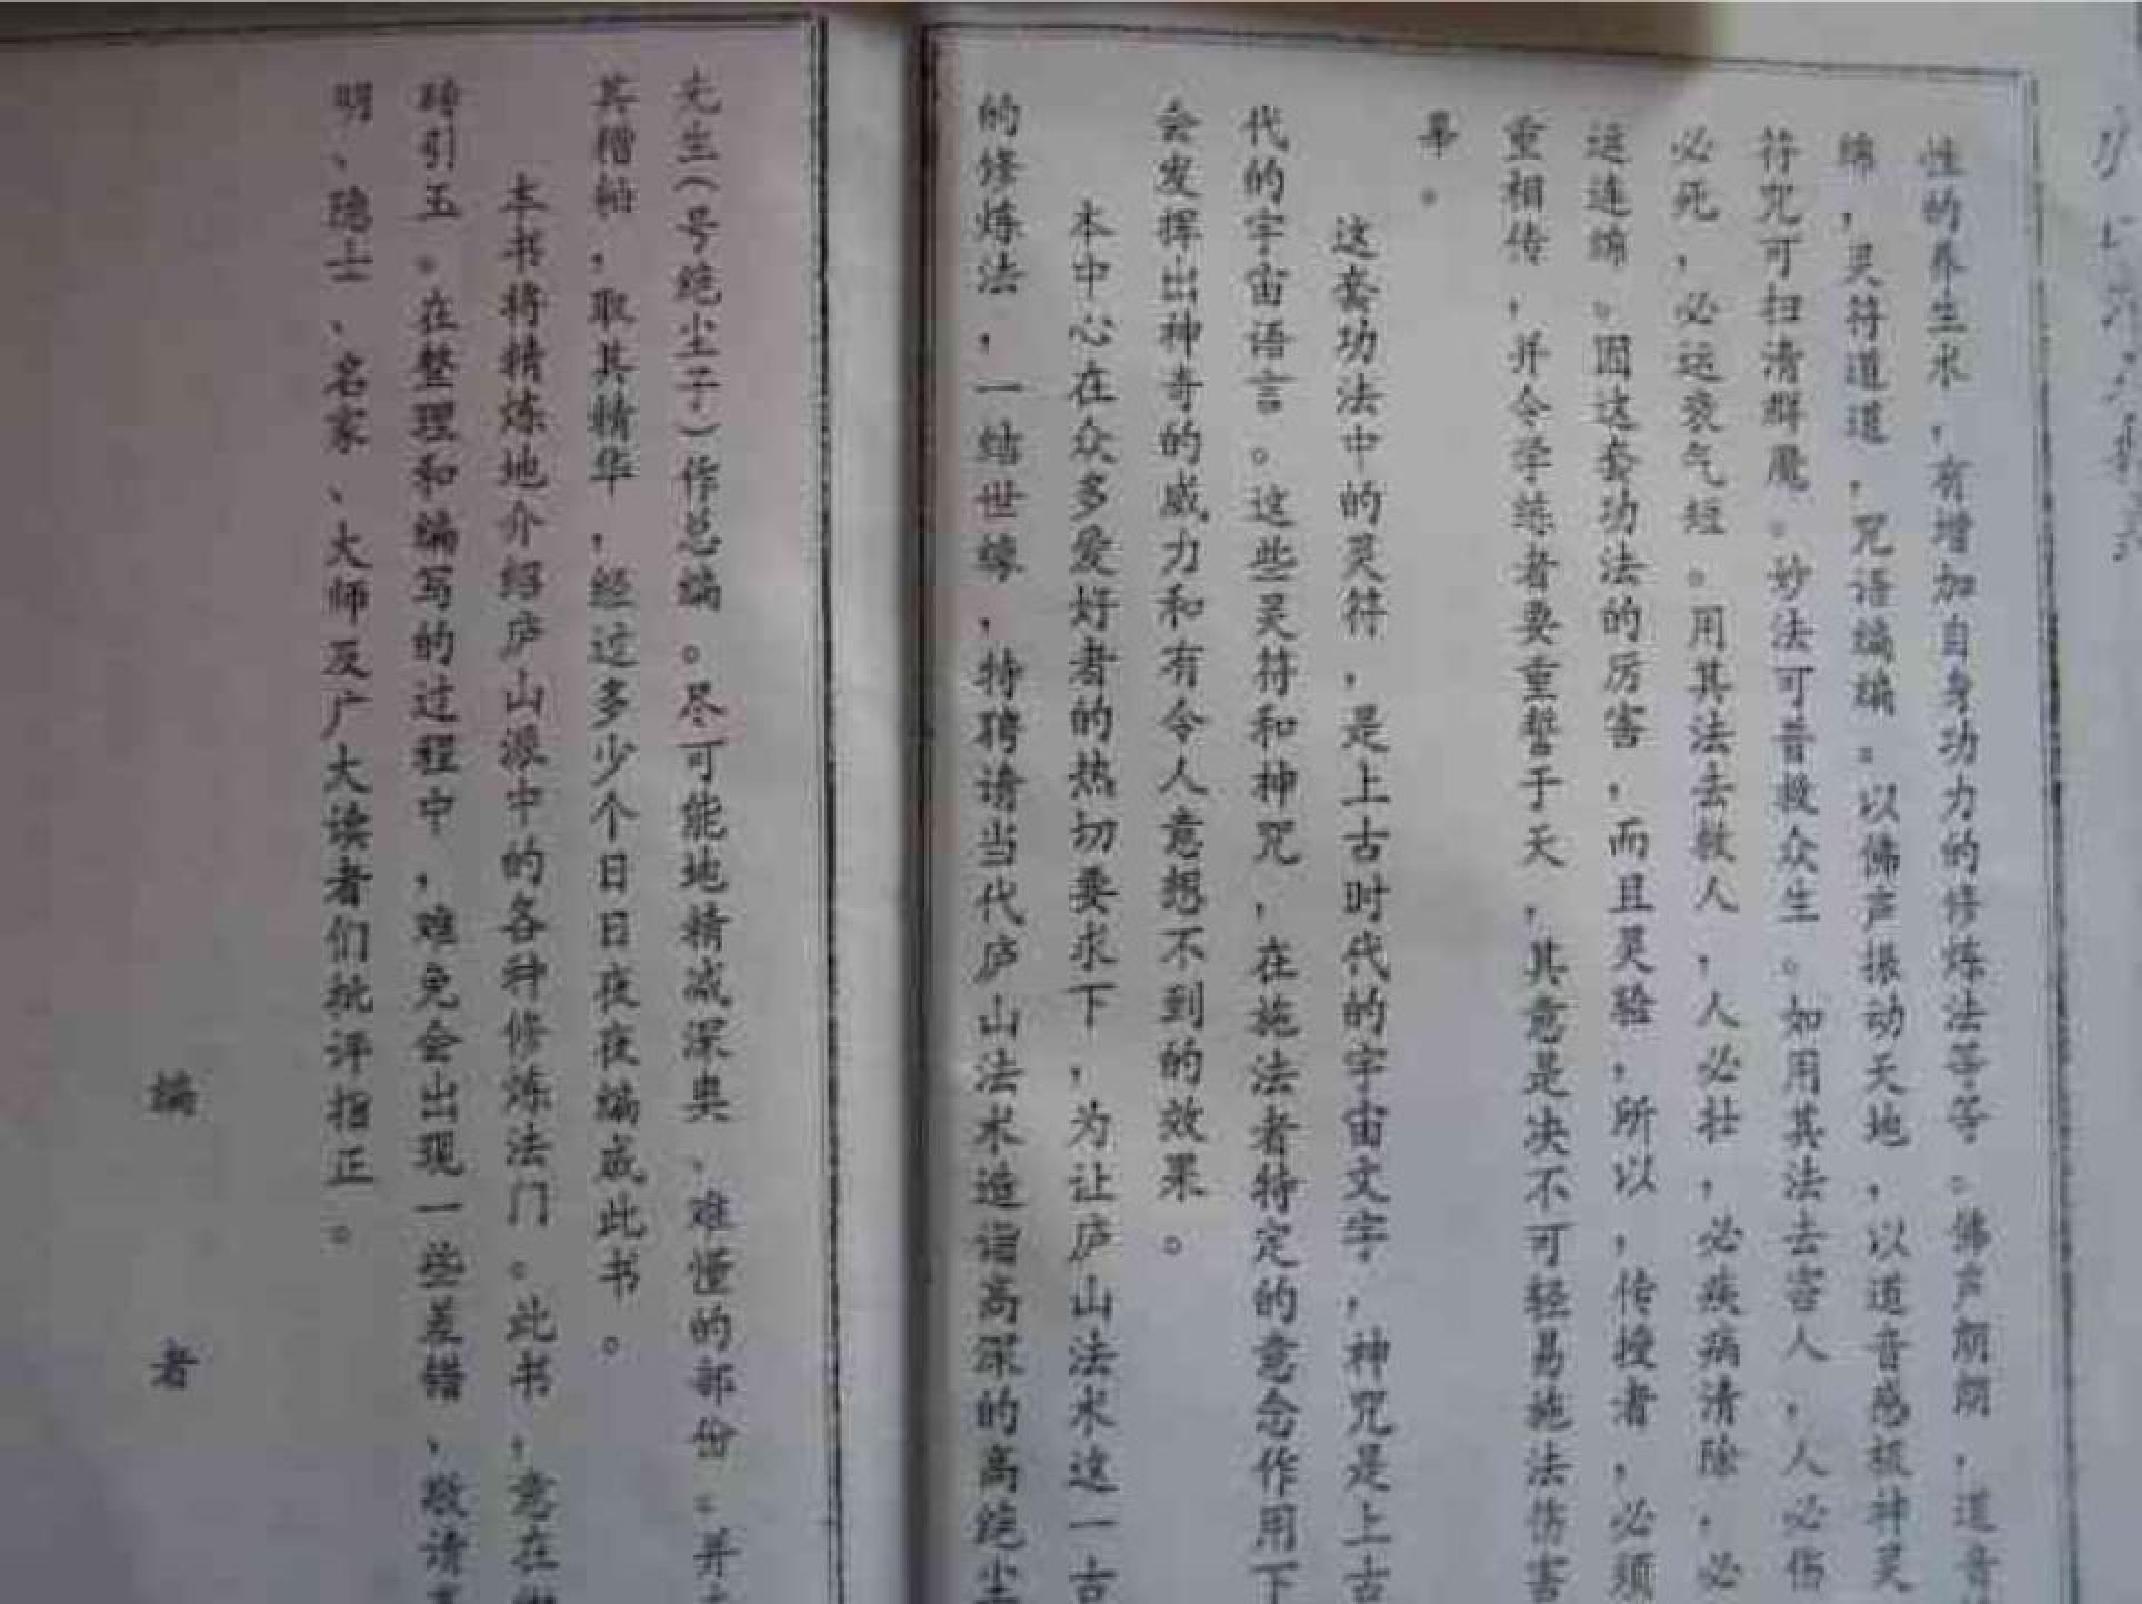 性的养生术，有增加自身功力的修炼法等等。佛声朗朗，道音
绵，灵符道道，咒语编编。以佛声振动天地，以道音感极神灵
符咒可扫清群魔。妙法可普救众生。如用其法去害人，人必伤
必死，必运衰气短。用其法去救人，人必壮，必疾病清除，必
运连绵。因这套功法的厉害，而且灵验，所以，传授者，必须
重相传，并令学练者要重誓于天，其意是决不可轻易施法伤害
辈。
这套功法中的灵符，是上古时代的宇宙文字，神咒是上古
代的宇宙语言。这些灵符和神咒，在施法者特定的意念作用下
会发挥出神奇的威力和有令人意想不到的效果。
本中心在众多爱好者的热切要求下，为让庐山法术这一古
的修炼法，一结世缘，特聘请当代庐山法术造诣高深的高绝尘
先生（号绝尘子）作总编。尽可能地精减深奥、难懂的部份。并
其糟粕，取其精华，经过多少个日日夜夜编成此书。
本书将精炼地介绍庐山派中的各种修炼法门。此书，意在
砖引玉。在整理和编写的过程中，难免会出现一些差错，敬请
明、隐士、名家、大师及广大读者们批评指正。
编 者